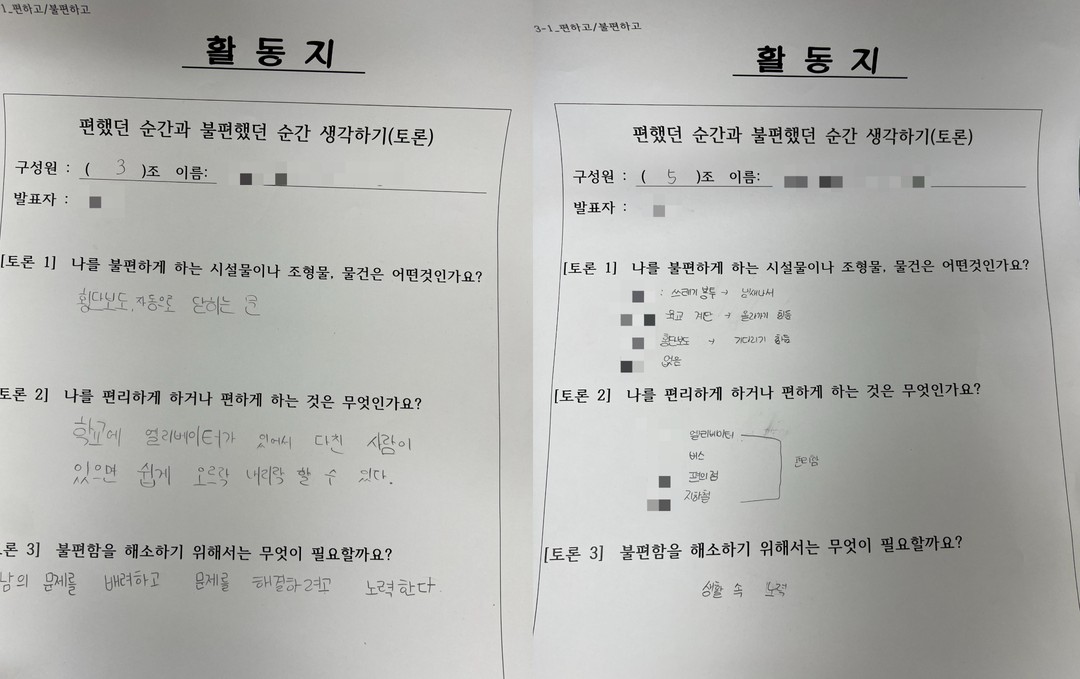 1_편하고/불편하고
활 동 지
편했던 순간과 불편했던 순간 생각하기(토론)
구성원 : ( 3 )조 이름:
발표자 :
[토론 1] 나를 불편하게 하는 시설물이나 조형물, 물건은 어떤것인가요?
횡단보도, 자동으로 닫히는 문
토론 2] 나를 편리하게 하거나 편하게 하는 것은 무엇인가요?
학교에 엘리베이터가 있어서 다친 사람이
있으면 쉽게 오르락 내리락 할 수 있다.
론 3] 불편함을 해소하기 위해서는 무엇이 필요할까요?
남의 문제를 배려하고 문제를 해결하려고 노력한다.
3-1_편하고/불편하고
활 동 지
편했던 순간과 불편했던 순간 생각하기(토론)
구성원 : ( 5 )조 이름:
발표자 :
[토론 1] 나를 불편하게 하는 시설물이나 조형물, 물건은 어떤것인가요?
: 쓰레기 봉투 → 냄새나서
육교 계단 → 올라가기 힘듬
횡단보도 → 기다리기 힘듬
없음
[토론 2] 나를 편리하게 하거나 편하게 하는 것은 무엇인가요?
엘리베이터
버스
편의점
지하철
편리함
[토론 3] 불편함을 해소하기 위해서는 무엇이 필요할까요?
생활 속 노력